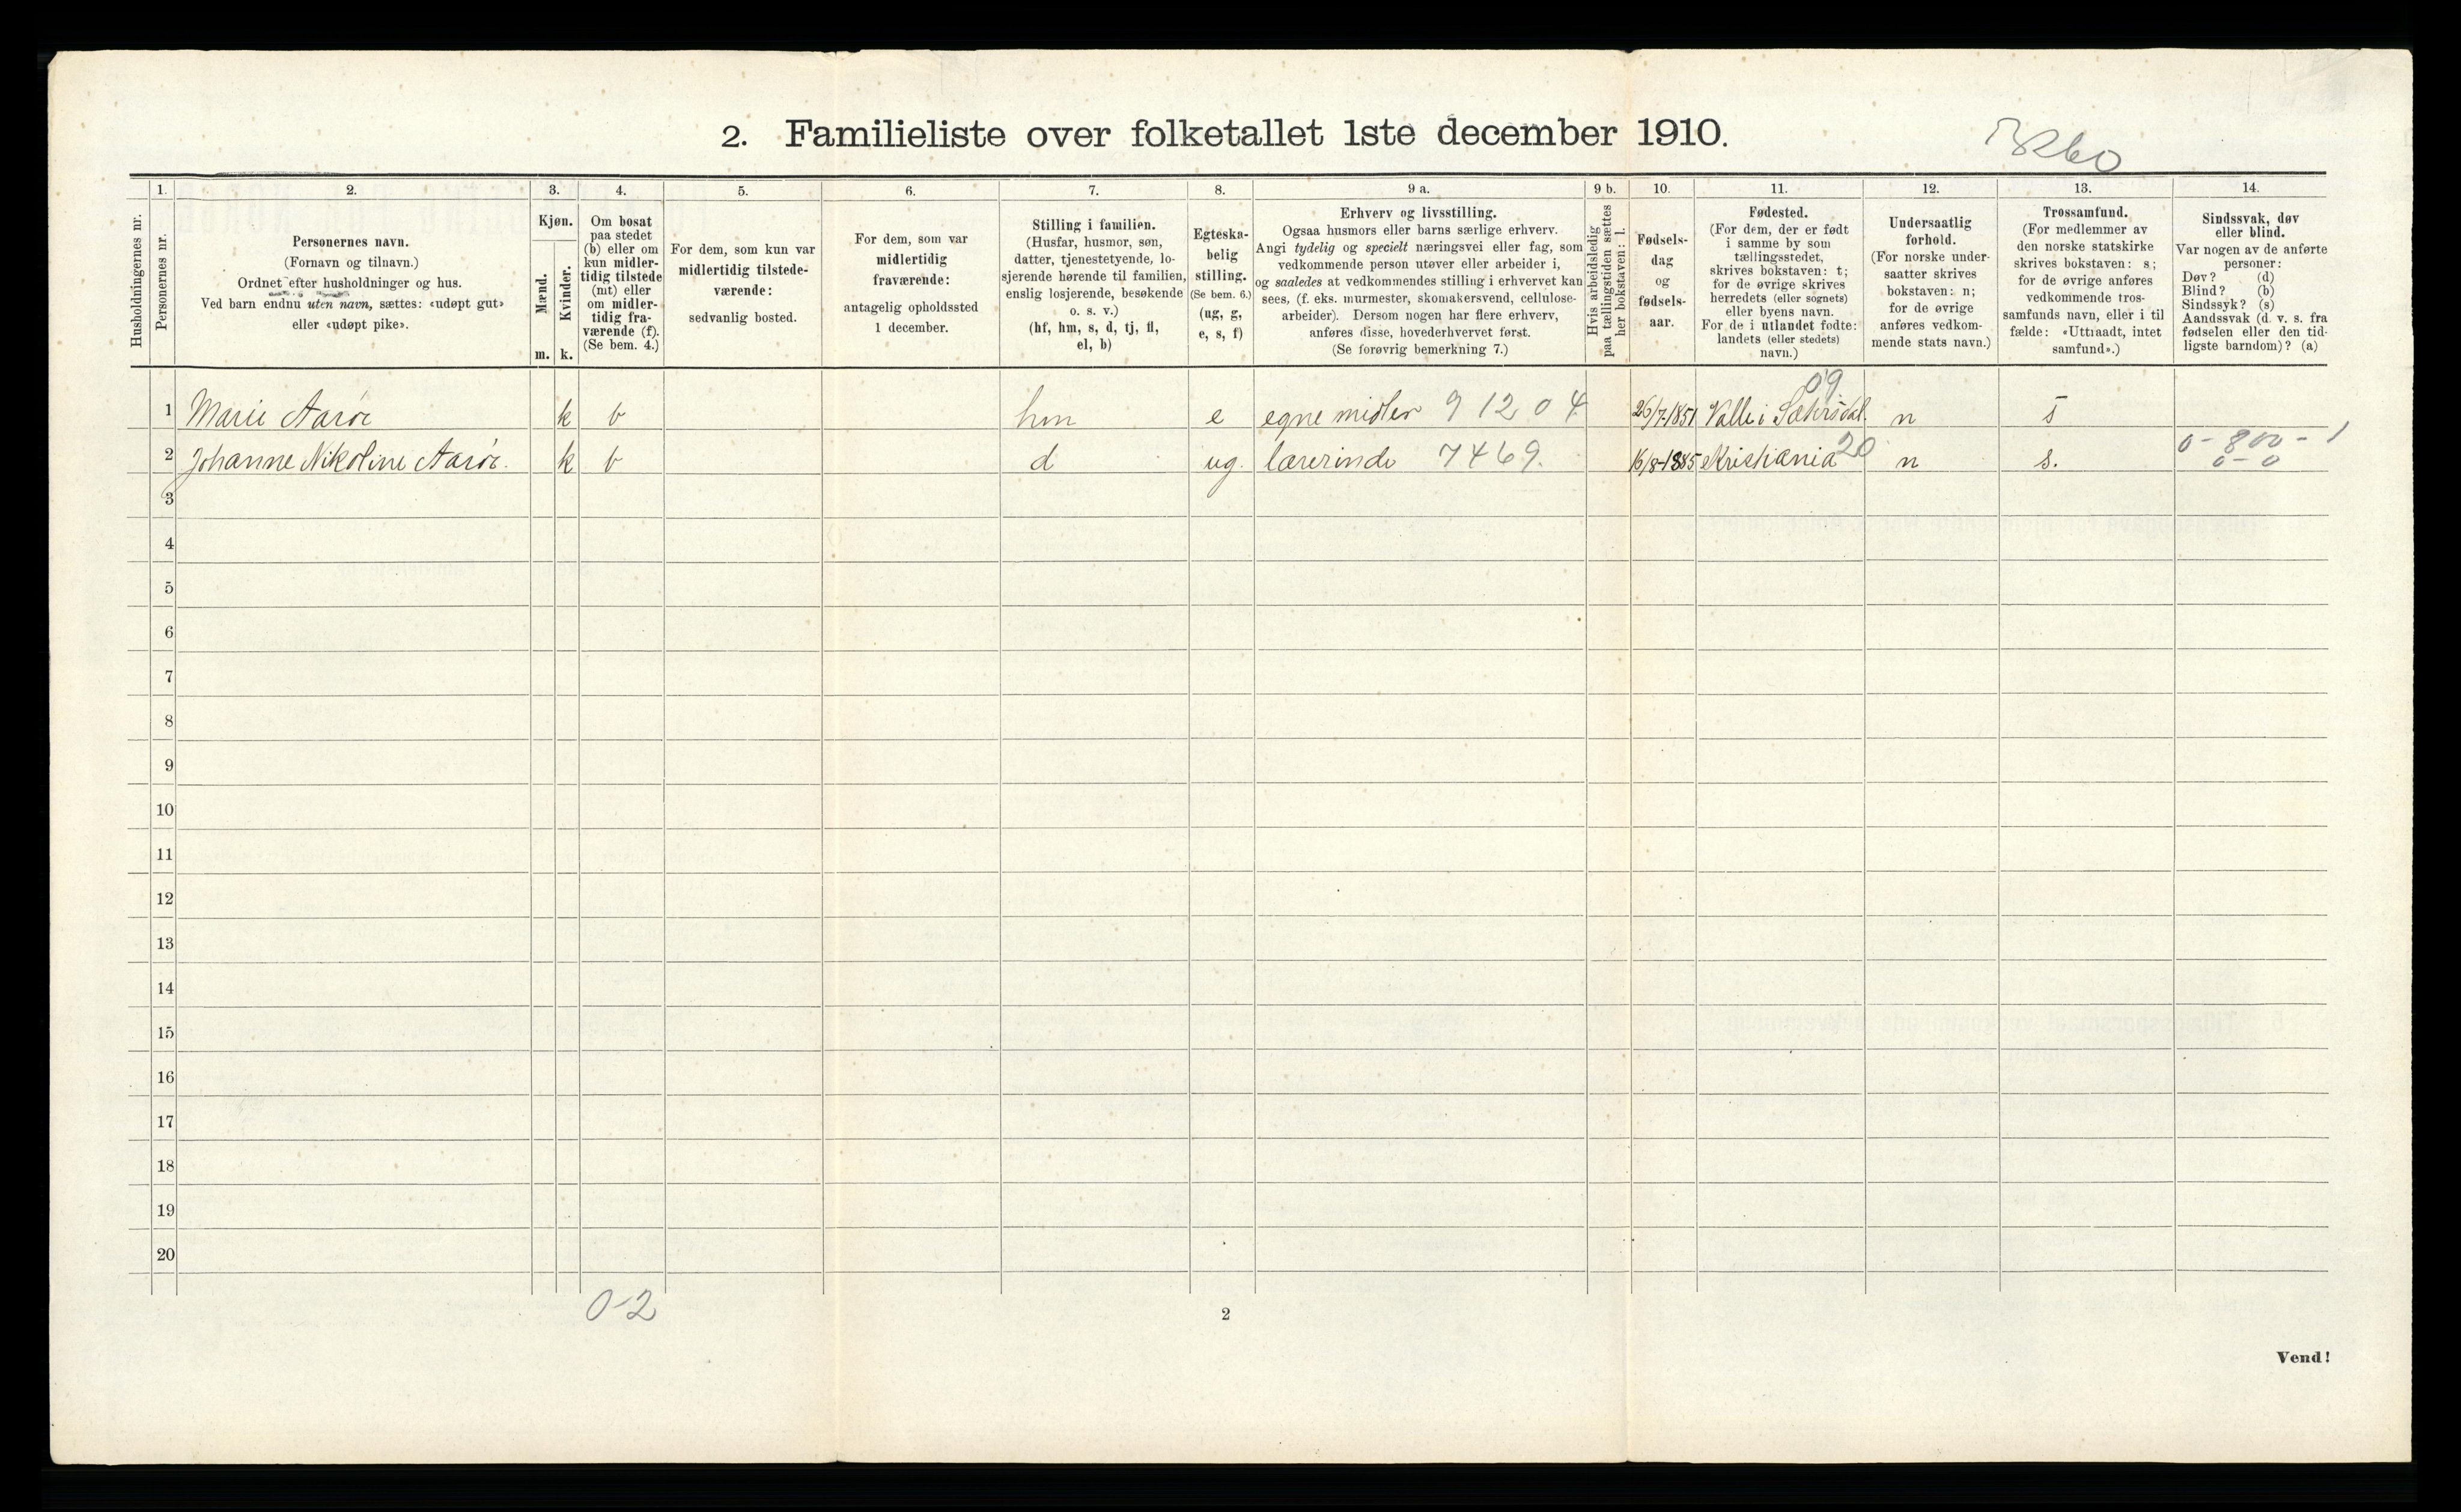 2. Familieliste over folketallet 1ste december 1910.
Husholdningernes nr.
1.
Personernes nr.
2.
Personernes navn.
(Fornavn og tilnavn.)
Ordnet efter husholdninger og hus.
Ved barn endnu uten navn, sættes: «udøpt gut»
eller «udøpt pike».
3.
Kjøn.
Mænd.
Kvinder.
m. k.
4.
Om bosat
paa stedet
(b) eller om
kun midler-
tidig tilstede
(mt) eller
om midler-
tidig fra-
værende (f).
(Se bem. 4.)
5.
For dem, som kun var
midlertidig tilstede-
værende:
sedvanlig bosted.
6.
For dem, som var
midlertidig
fraværende:
antagelig opholdssted
1 december.
7.
Stilling i familien.
(Husfar, husmor, søn,
datter, tjenestetyende, lo-
sjerende hørende til familien,
enslig losjerende, besøkende
o. s. v.)
(hf, hm, s, d, tj, fl,
el, b)
8.
Egteska-
belig
stilling.
(Se bem. 6.)
(ug, g,
e, s, f)
9 a.
Erhverv og livsstilling.
Ogsaa husmors eller barns særlige erhverv.
Angi tydelig og specielt næringsvei eller fag, som
vedkommende person utøver eller arbeider i,
og saaledes at vedkommendes stilling i erhvervet kan
sees, (f. eks. murmester, skomakersvend, cellulose-
arbeider). Dersom nogen har flere erhverv,
anføres disse, hovederhvervet først.
(Se forøvrig bemerkning 7.)
9 b.
Hvis arbeidsledig
paa tællingstiden sættes
her bokstaven: l.
10.
Fødsels-
dag
og
fødsels-
aar.
11.
Fødested.
(For dem, der er født
i samme by som
tællingsstedet,
skrives bokstaven: t;
for de øvrige skrives
herredets (eller sognets)
eller byens navn.
For de i utlandet fødte:
landets (eller stedets)
navn.)
12.
Undersaatlig
forhold.
(For norske under-
saatter skrives
bokstaven: n;
for de øvrige
anføres vedkom-
mende stats navn.)
13.
Trossamfund.
(For medlemmer av
den norske statskirke
skrives bokstaven: s;
for de øvrige anføres
vedkommende tros-
samfunds navn, eller i til
fælde: «Uttraadt, intet
samfund».)
14.
Sindssvak, døv
eller blind.
Var nogen av de anførte
personer:
Døv? (d)
Blind? (b)
Sindssyk? (s)
Aandssvak (d. v. s. fra
fødselen eller den tid-
ligste barndom)? (a)
09
1 Marie Aarøe k b hm e egne midler 91204 26/7-1851 Valle i Sætersdal. n s
2 Johanne Nikoline Aarøe. k b d ug. lærerinde 7469. 16/8-1885 Kristiania 20 n s. 0-800-1
0-0
3
4
5
6
7
8
9
10
11
12
13
14
15
16
17
18
19
20
0-2
2
Vend!